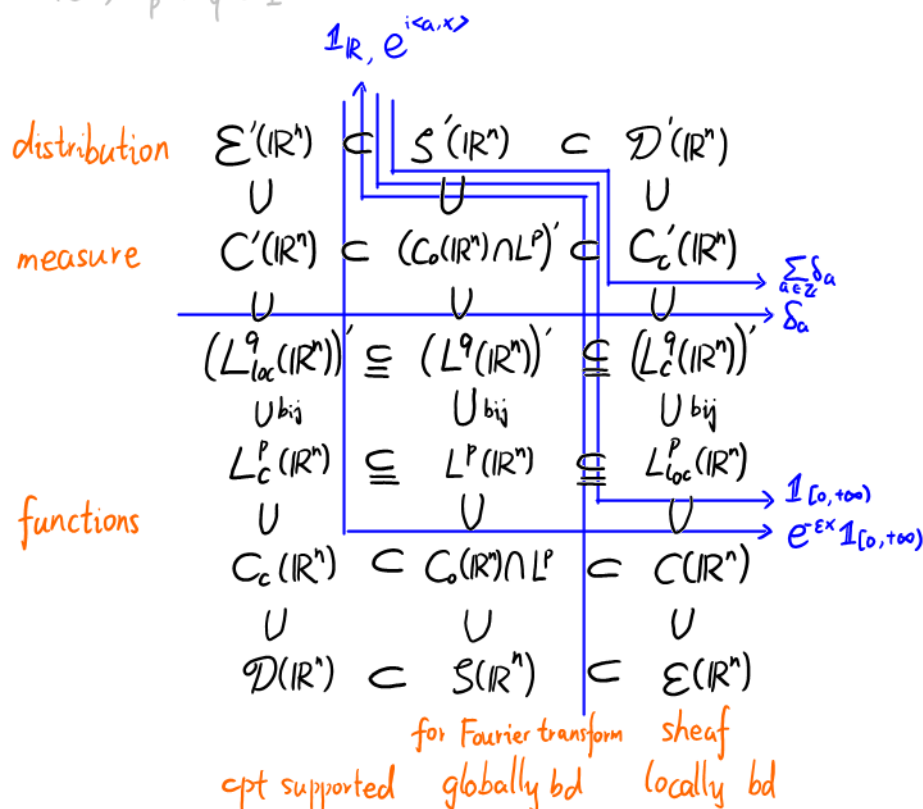 𝟙_ℝ, e^{i<a,x>}
distribution ℰ'(ℝⁿ) ⊂ 𝒮'(ℝⁿ) ⊂ 𝒟'(ℝⁿ)
∪ ∪ ∪
measure C'(ℝⁿ) ⊂ (C₀(ℝⁿ)∩L^p)' ⊂ C_c'(ℝⁿ)
∑_{a∈ℤ} δ_a
∪ ∪ ∪
δ_a
(L^q_{loc}(ℝⁿ))' ⊆ (L^q(ℝⁿ))' ⊆ (L^q_c(ℝⁿ))'
∪ bij ∪ bij ∪ bij
L^p_c(ℝⁿ) ⊆ L^p(ℝⁿ) ⊆ L^p_{loc}(ℝⁿ)
𝟙_{[0,+∞)}
functions ∪ ∪ ∪
e^{-εx} 𝟙_{[0,+∞)}
C_c(ℝⁿ) ⊂ C₀(ℝⁿ)∩L^p ⊂ C(ℝⁿ)
∪ ∪ ∪
𝒟(ℝⁿ) ⊂ 𝒮(ℝⁿ) ⊂ ℰ(ℝⁿ)
for Fourier transform sheaf
cpt supported globally bd locally bd